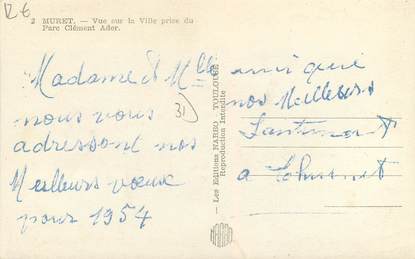 R6
2 MURET. — Vue sur la Ville prise du
Parc Clément Ader.
Madame & Mlle
nous vous
adressons nos
Meilleurs vœux
pour 1954
31
— Les Editions NARBO — TOULOUSE —
Reproduction Interdite
ainsi que
nos Meilleurs
Sentiments
a